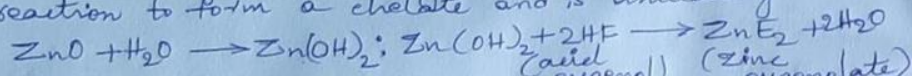 reaction to form a chelate and is
ZnO + H₂O ⟶ Zn(OH)₂ ; Zn(OH)₂ + 2HE ⟶ ZnE₂ + 2H₂O
(acid (zinc